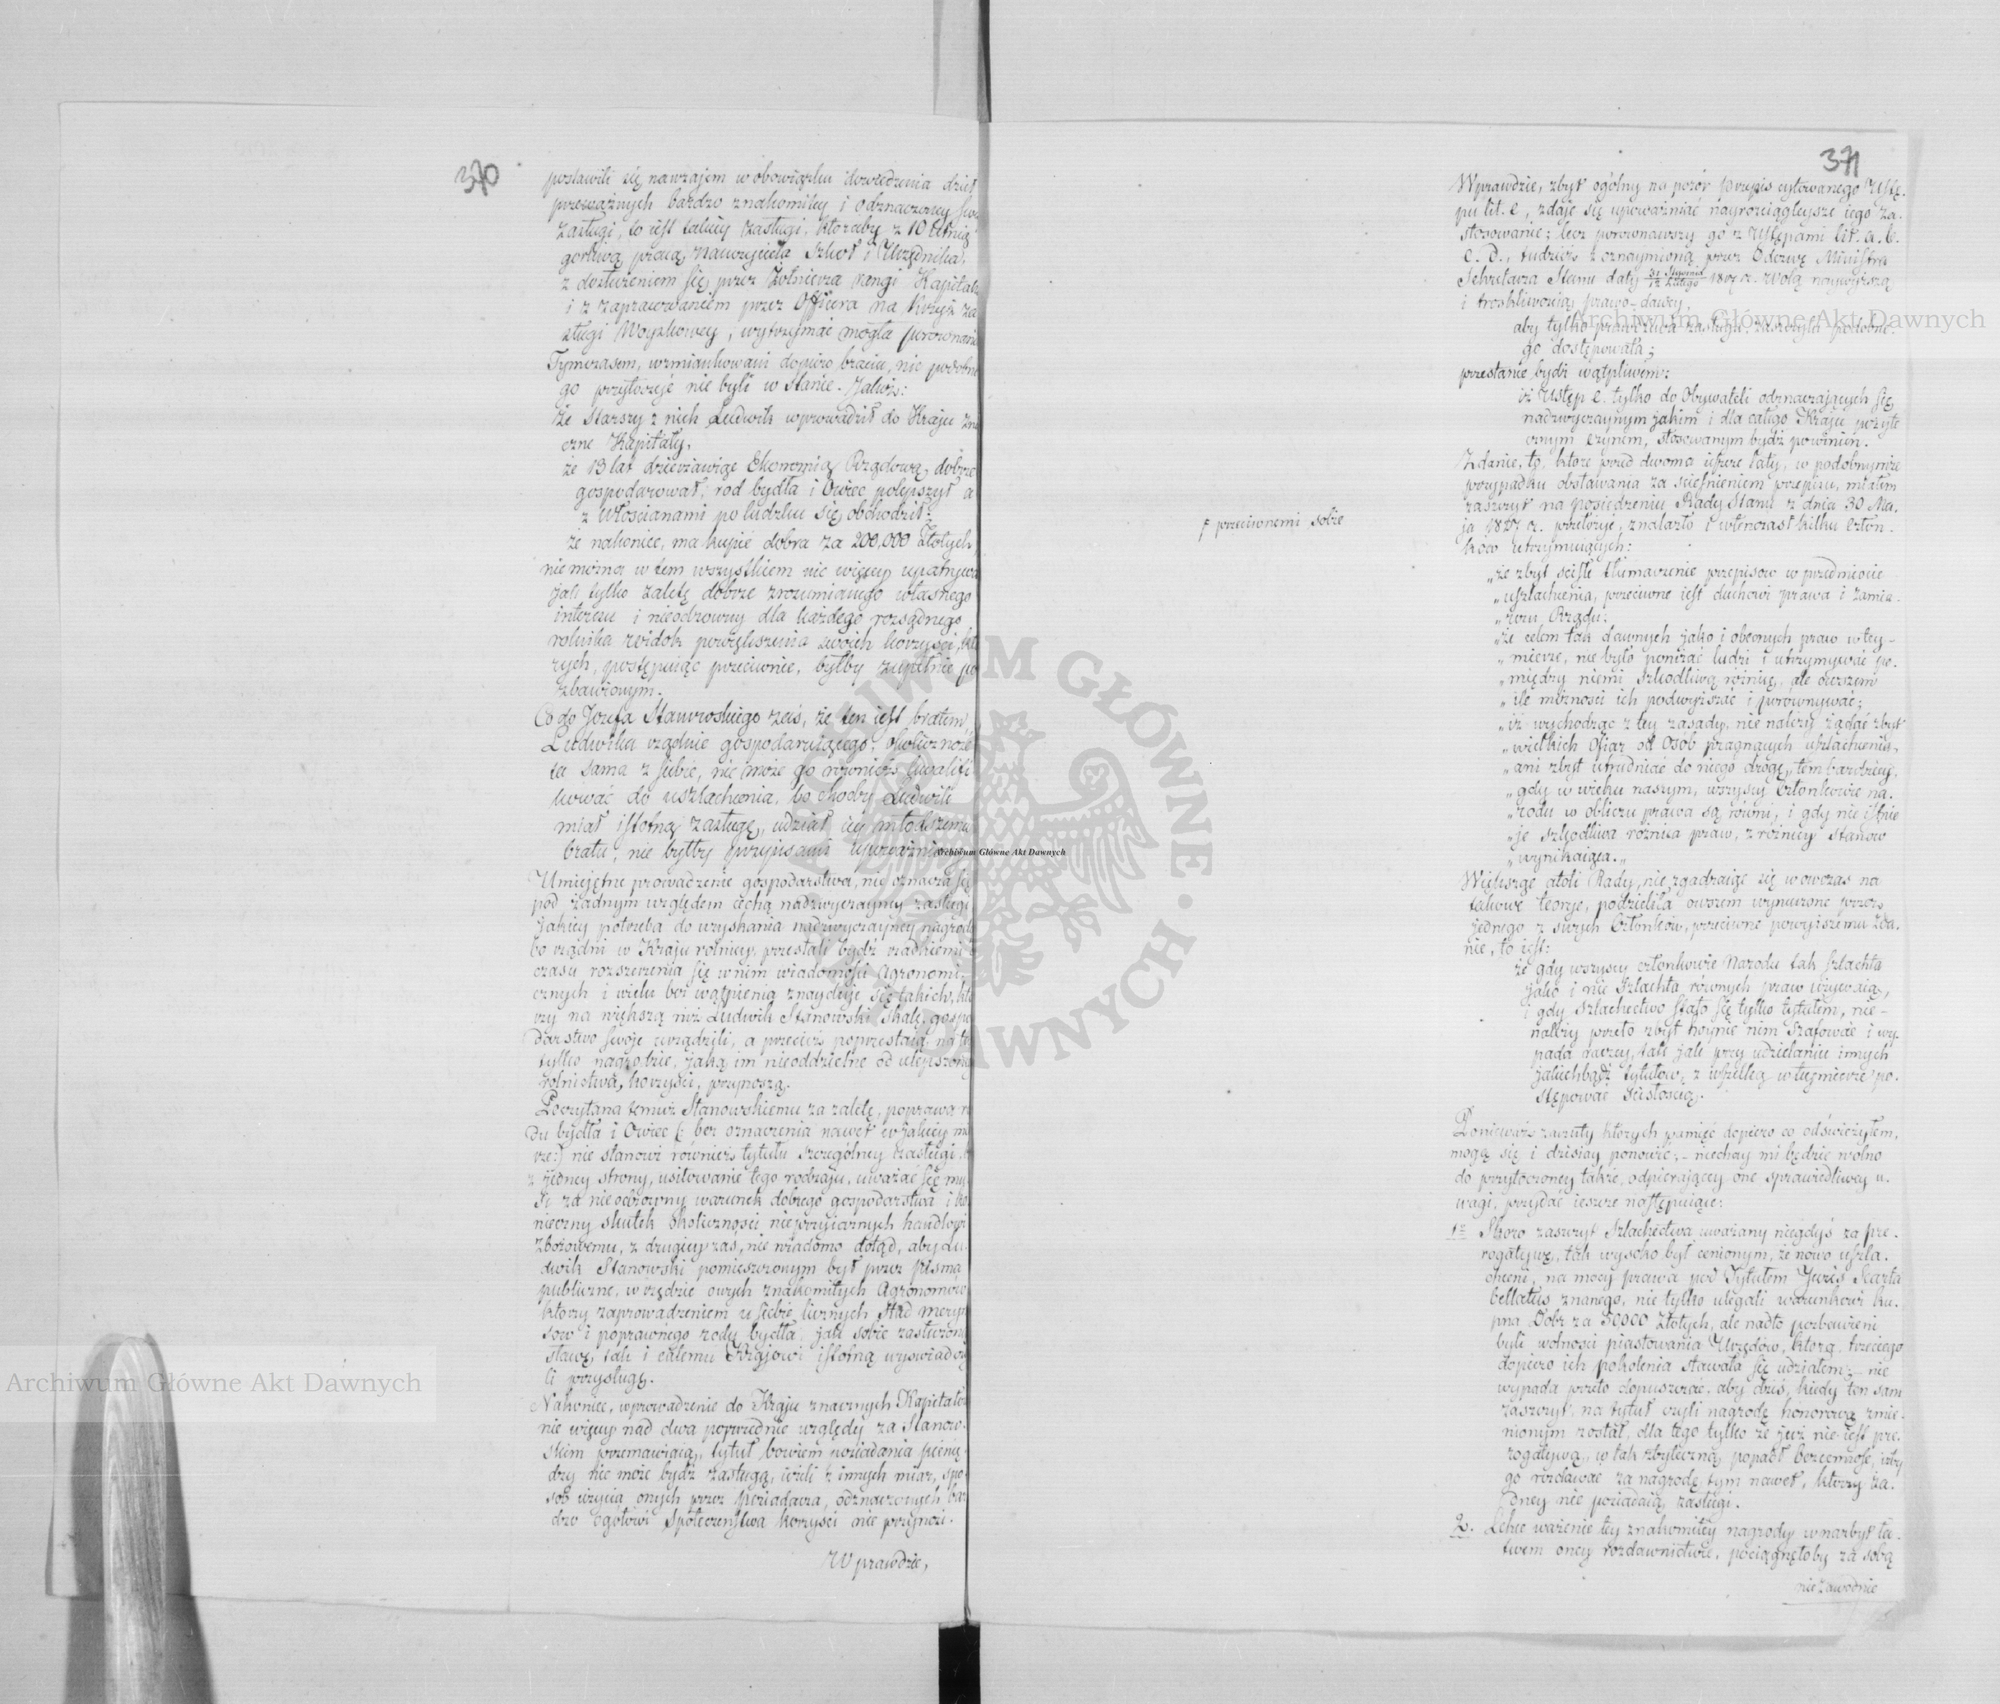 370
postawili się nawzajem w obowiązku dowiedzenia dzieł
przeważnych bardzo znakomitey i odznaczoney
zasługi, to iest takiey zasługi, ktoraby z 10 letnią
gorliwą pracą, Nauczyciela Szkoł i Urzędnika,
z dosłużeniem się przez Żołnierza rangi Kapitana
i z zapracowaniem przez Officera na Krzyż za-
sługi Woyskowey, wytrzymać mogła porownanie
Tymczasem, wzmiankowani dopiero bracia, nic podobne-
go przytoszyć nie byli w stanie. Jakoż:
że Starszy z nich Ludwik wprowadził do Kraju zna-
czne Kapitały,
że 13 lat dzierżawiąc Ekonomią Rządową, dobrze
gospodarował, rod bydła i Owiec polepszył a
z Włościanami po ludzku się obchodził:
że nakoniec, ma kupić dobra za 200,000 Złotych,
nie można w tem wszystkiem nic więcey upatrywać
jak tylko zaletę dobrze zrozumianego własnego
interesu i nieodzowny dla każdego rozsądnego
rolnika widok powiększenia swoich korzyści, któ-
rych, postępuiąc przeciwnie, byłby zupełnie po-
zbawionym.
Co do Jozefa Stanowskiego zaś, że ten iest bratem
Ludwika rządnie gospodaruiącego; okoliczność
ta sama z siebie, nie może go rownież kwalifi-
kować do uszlachcenia, bo choćby Ludwik
miał istotną zasługę, udział iey młodszemu
bratu, nie byłby przepisami upoważnionym.
Umieiętne prowadzenie gospodarstwa, nie oznacza się
pod żadnym względem cechą nadzwyczayney zasługi
jakiey potrzeba do uzyskania nadzwyczayney nagrody
bo rządni w Kraju rolnicy, przestali bydź rzadkiemi od
czasu rozszerzenia się w nim wiadomości Agronomi-
cznych i wielu bez wątpienia znayduje się takich, któ-
rzy na większą niż Ludwik Stanowski skalę, gospo-
darstwo swoje urządzili, a przecież poprzestaią na tey
tylko nagrodzie, jaką im nieoddzielne od ulepszonego
rolnictwa, korzyści, przynoszą.
Poczytana temuż Stanowskiemu za zaletę, poprawa ro-
du bydła i Owiec (: bez oznaczenia nawet w jakiey mie-
rze:) nie stanowi również tytułu szczególney zasługi, bo
z jedney strony, usiłowanie tego rodzaju, uważać się mu-
si za nieodzowny warunek dobrego gospodarstwa i ko-
nieczny skutek okoliczności nieprzyiaznych handlowi
zbożowemu, z drugiey zaś, nie wiadomo dotąd, aby Lu-
dwik Stanowski pomieszczonym był przez pisma
publiczne, w rzędzie owych znakomitych Agronomów
ktorzy zaprowadzeniem u siebie licznych stad mery-
sow i poprawnego rodu bydła, jak sobie zasłużoną
sławę, tak i całemu Krajowi istotną wyświadczy-
li przysługę.
Nakoniec, wprowadzenie do Kraju znacznych Kapitałów
nie więcey nad dwa poprzednie względy za Stanow-
skim przemawiaią, tytuł bowiem posiadania pienię-
dzy nie może bydź zasługą, ieżeli z innych miar, spo-
sob użycia onych przez posiadacza, odznaczonych bar-
dzo ogółowi Społeczeństwa korzyści nie przynosi.
Wprawdzie,
371
Wprawdzie, zbyt ogólny na pozór przepis cytowanego Ustę-
pu lit. e, zdaje się upoważniać nayrozciągleysze iego za-
stosowanie; lecz porównawszy go z Ustępami lit. a. b.
c. D., tudzież z oznaymioną przez Odezwę Ministra
Sekretarza Stanu daty 31 Stycznia / 12 Lutego 18 r. Wolą naywyższą
i troskliwością prawo-dawcy,
aby tylko prawdziwa zasługa, zaszczytu podobne-
go dostępowała;
przestanie bydź wątpliwem:
iż Ustęp e. tylko do Obywateli odznaczaiących się
nadzwyczaynym jakim i dla całego Kraju pożyte-
cznym czynem, stosowanym bydź powinien.
Zdanie, to, które przed dwoma ieszcze laty, w podobnymże
przypadku obstawania za ścieśnieniem przepisu, miałem
zaszczyt na posiedzeniu Rady Stanu z dnia 30 Ma-
ja 18 r. przełożyć, znalazło i wtenczas kilku człon-
ków utrzymuiących:
ƒ przeciwnemi sobie
„że zbyt ścisłe tłumaczenie przepisow w przedmiocie
„uszlachcenia, przeciwne iest duchowi prawa i zamia-
„rowi Rządu:
„że celem tak dawnych jako i obecnych praw w tey-
„mierze, nie było poniżać ludzi i utrzymywać po-
„między niemi szkodliwą różnicę, ale owszem
„ile możności ich podwyższać i porównywać;
„iż wychodząc z tey zasady, nie należy żądać zbyt
„wielkich Ofiar od Osób pragnących uszlachcenia,
„ani zbyt utrudniać do niego drogę, tem bardziey,
„gdy w wieku naszym, wszyscy Członkowie na-
„rodu w obliczu prawa są równi, i gdy nie istnie-
„je szkodliwa różnica praw, z różnicy stanow
„wynikaiąca.„
Większość atoli Rady, nie zgadzaiąc się wowczas na
takowe teorye, podzieliła owszem wynurzone przez
jednego z swych Członków, przeciwne powyższemu zda-
nie, to iest:
że gdy wszyscy członkowie Narodu tak szlachta
jako i nie szlachta, równych praw używaią,
i gdy szlachectwo stało się tylko tytułem, nie-
należy przeto zbyt hoynie nim szafować i wy-
pada raczey, tak jak przy udzielaniu innych
jakichbądź tytułow, z wszelką w tey mierze po-
stępować ścisłością.
Ponieważ zarzuty których pamięć dopiero co odświeżyłem,
mogą się i dzisiay ponowić; – niechay mi będzie wolno
do przytoczoney także, odpieraiącey one sprawiedliwey u-
wagi, przydać ieszcze następuiące:
1e Skoro zaszczyt Szlachectwa uważany niegdyś za pre-
rogatywę, tak wysoko był cenionym, że nowo uszla-
chceni, na mocy prawa pod Tytułem Juris Scarta
bellatus znanego, nie tylko ulegali warunkowi ku-
pna Dobr za 50000 Złotych, ale nadto pozbawieni
byli wolności piastowania Urzędów, która trzeciego
dopiero ich pokolenia stawała się udziałem; – nie
wypada przeto dopuszczać, aby dziś, kiedy ten sam
zaszczyt, na tytuł czyli nagrodę honorową zmie-
nionym został, dla tego tylko że już nie iest pre-
rogatywą, w tak zbyteczną popadł bezcenność, iżby
go rozdawać za nagrodę tym nawet, ktorzy ża-
dney nie posiadaią zasługi.
2. Lekce ważenie tey znakomitey nagrody w nazbyt ła-
twem oney rozdawnictwie, pociągnęłoby za sobą
niezawodnie
Archiwum Główne Akt Dawnych
Archiwum Główne Akt Dawnych
Archiwum Główne Akt Dawnych
ARCHIWUM GŁÓWNE · AKT DAWNYCH ·